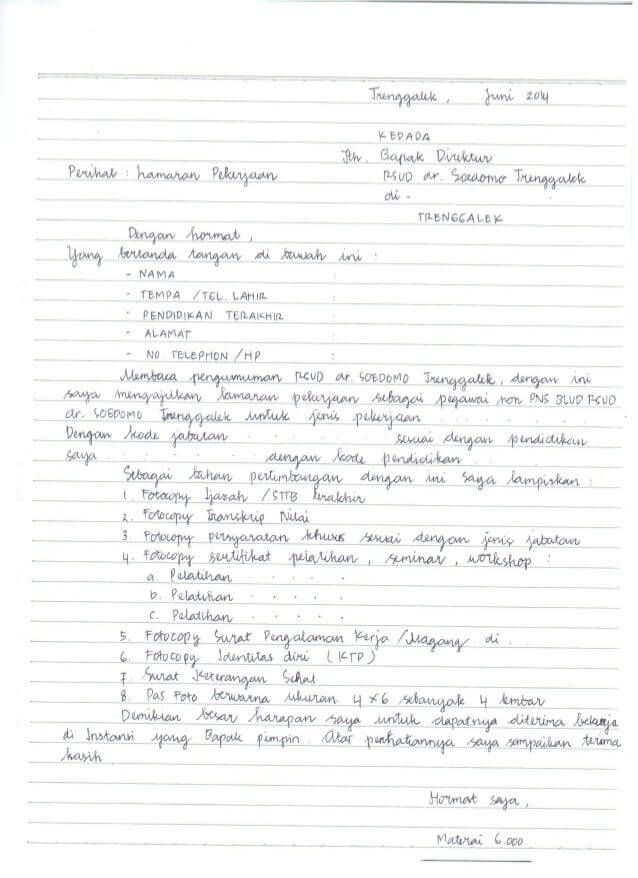 Trenggalek, Juni 2014
KEPADA
Yth. Bapak Direktur
Perihal : Lamaran Pekerjaan RSUD dr. Soedomo Trenggalek
di -
TRENGGALEK
Dengan hormat,
Yang bertanda tangan di bawah ini :
- NAMA :
- TEMPA /TGL. LAHIR :
- PENDIDIKAN TERAKHIR :
- ALAMAT :
- NO TELEPHON /HP :
Membaca pengumuman RSUD dr. SOEDOMO Trenggalek, dengan ini
saya mengajukan lamaran pekerjaan sebagai pegawai non PNS BLUD RSUD
dr. SOEDOMO Trenggalek untuk jenis pekerjaan . . . . . . . .
Dengan kode jabatan . . . . . . . . sesuai dengan pendidikan
saya . . . . . . . . dengan kode pendidikan . . . . . . . .
Sebagai bahan pertimbangan dengan ini saya lampirkan :
1. Fotocopy Ijazah /STTB terakhir
2. Fotocopy Transkrip Nilai
3. Fotocopy persyaratan khusus sesuai dengan jenis jabatan
4. Fotocopy sertifikat pelatihan, seminar, workshop :
a. Pelatihan . . . . .
b. Pelatihan . . . . .
c. Pelatihan . . . . .
5. Fotocopy Surat Pengalaman Kerja /Magang di .
6. Fotocopy Identitas diri (KTP)
7. Surat Keterangan Sehat
8. Pas Foto berwarna ukuran 4x6 sebanyak 4 lembar
Demikian besar harapan saya untuk dapatnya diterima bekerja
di Instansi yang Bapak pimpin. Atas perhatiannya saya sampaikan terima
kasih
Hormat saya,
Materai 6.000